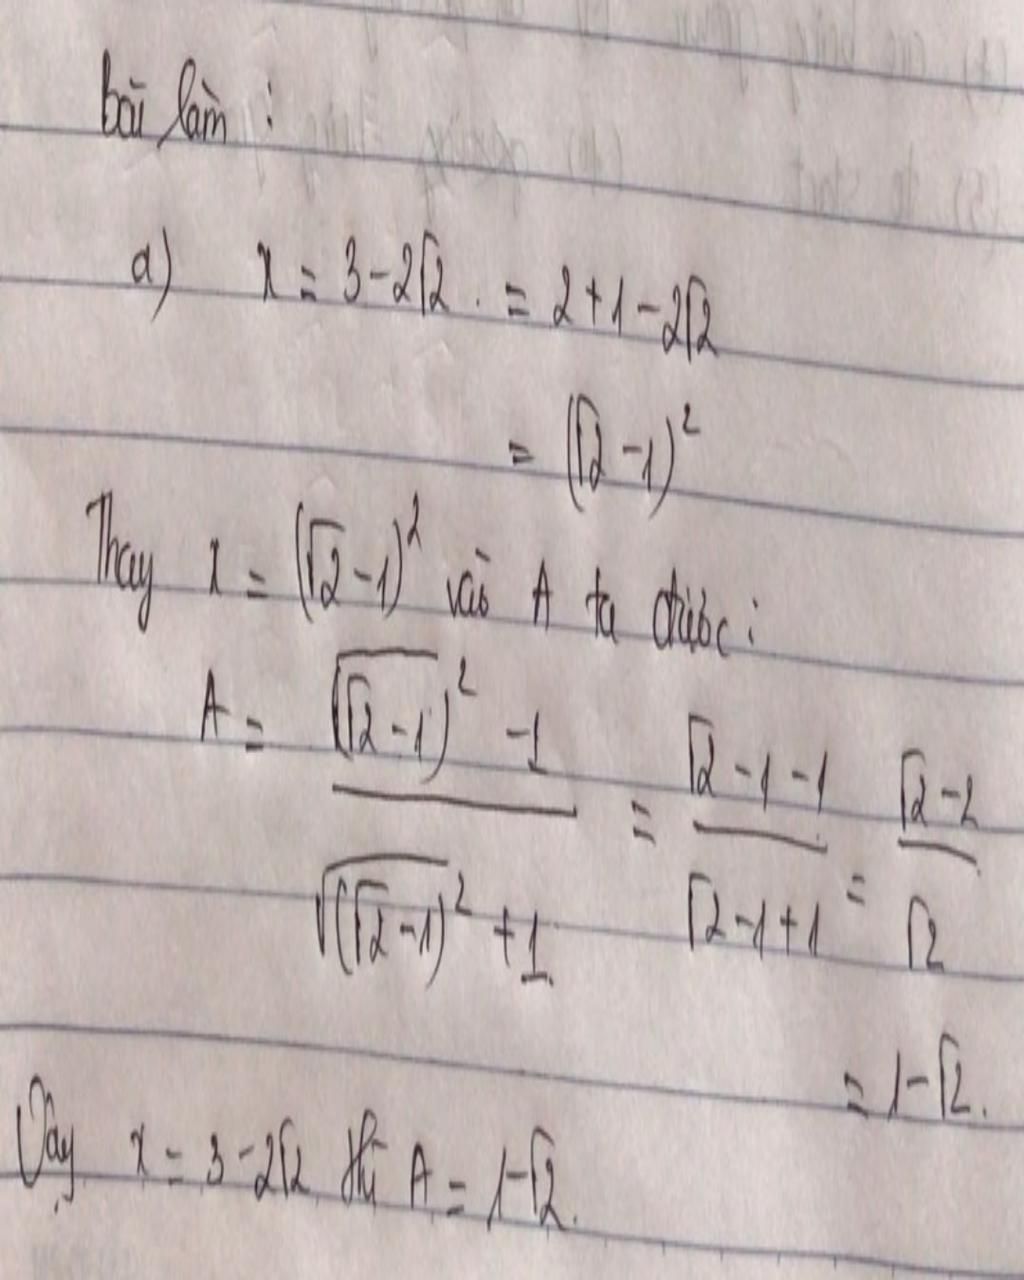 bài làm :
a) x = 3-2√2 . = 2+1-2√2
= (√2 -1)²
Thay x = (√2-1)² vào A ta được :
A = (√(√2-1)² -1) / (√(√2-1)² +1) = (√2-1-1) / (√2-1+1) = (√2-2) / √2
= 1-√2.
Vậy x = 3-2√2 thì A = 1-√2.